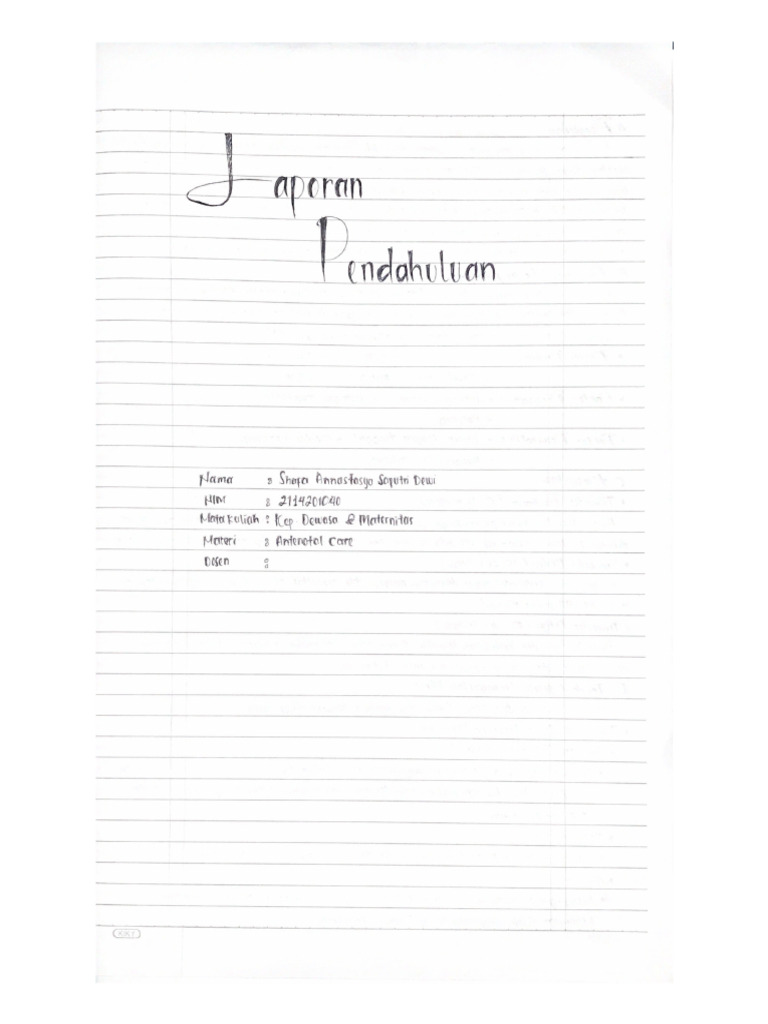 Laporan
Pendahuluan
Nama : Shafa Annastasya Saputri Dewi
NIM : 2114201040
Mata kuliah : Kep Dewasa & Maternitas
Materi : Antenatal Care
Dosen :
KKY